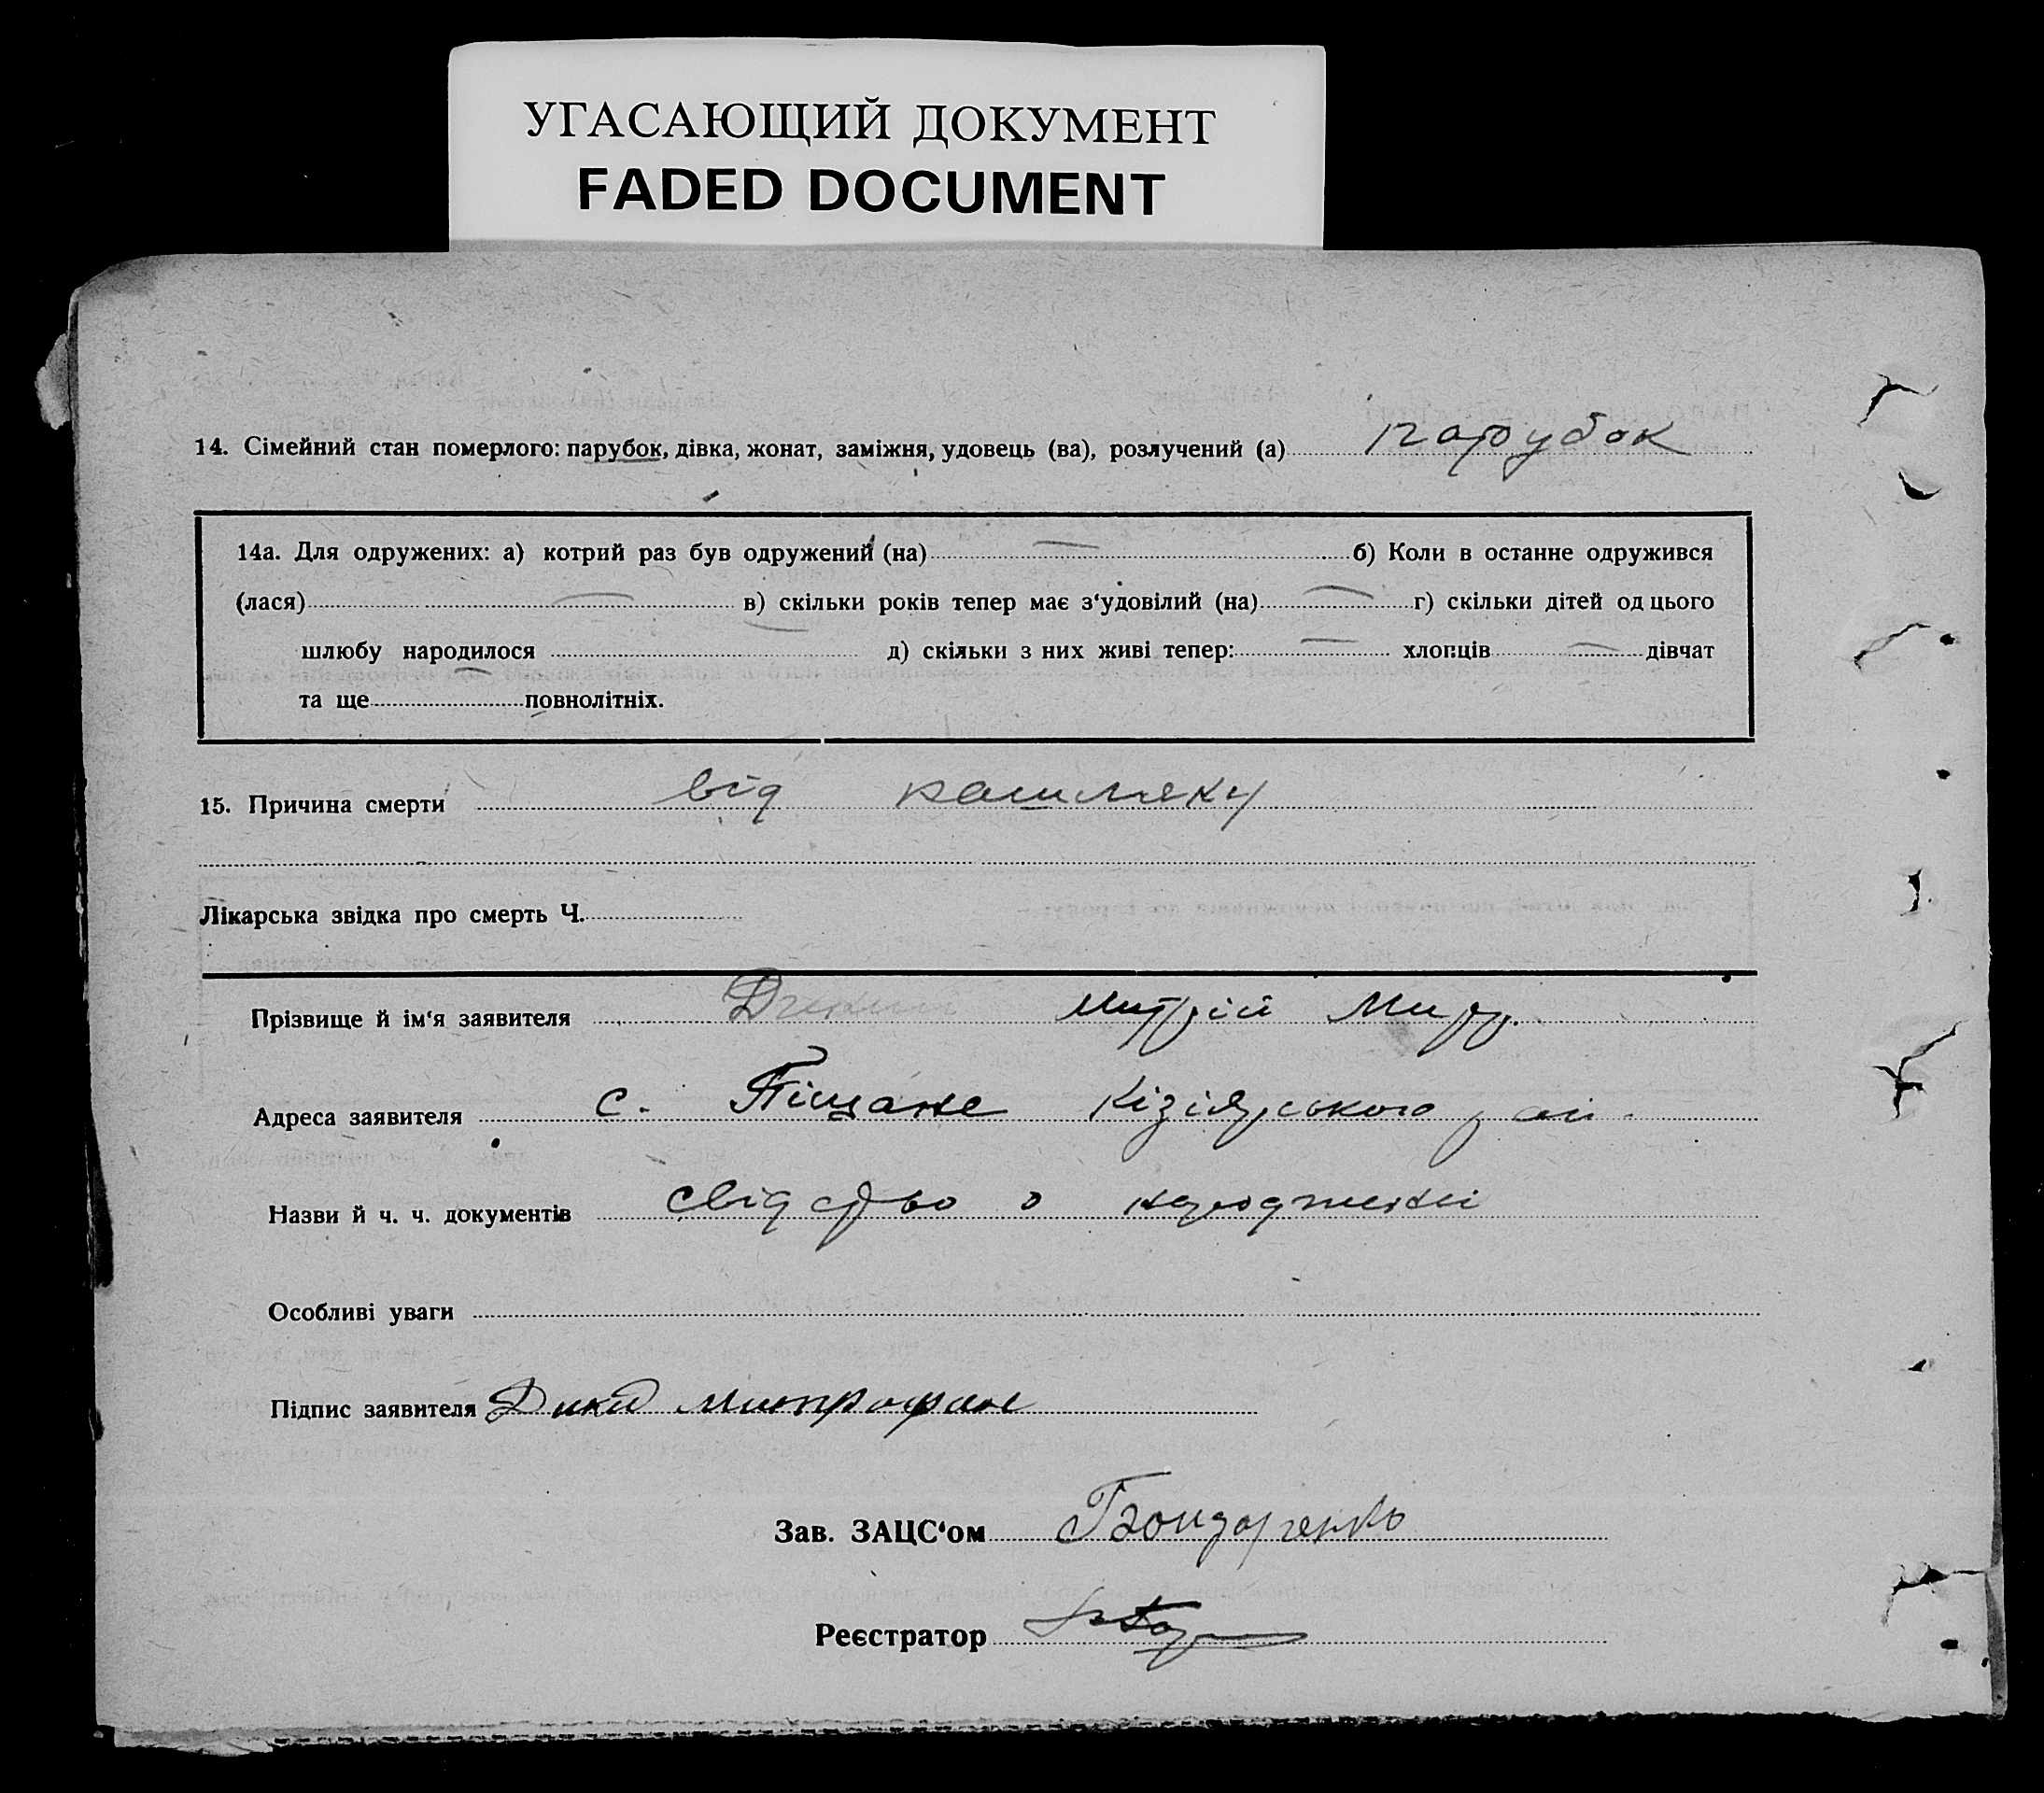 УГАСАЮЩИЙ ДОКУМЕНТ
FADED DOCUMENT
14. Сімейний стан померлого: парубок, дівка, жонат, заміжня, удовець (ва), розлучений (а) парубок
14а. Для одружених: а) котрий раз був одружений (на) — б) Коли в останне одружився
(лася) — в) скільки років тепер має з‘удовілий (на) — г) скільки дітей од цього
шлюбу народилося — д) скільки з них живі тепер: — хлопців — дівчат
та ще — повнолітніх.
15. Причина смерти від кашляку
Лікарська звідка про смерть Ч.
Прізвище й ім‘я заявителя Митрій
Адреса заявителя с. Піщане Кізіярського рай.
Назви й ч. ч. документів свідство о народженні
Особливі уваги
Підпис заявителя Дикий Митрофан
Зав. ЗАЦС‘ом Бондаренко
Реєстратор